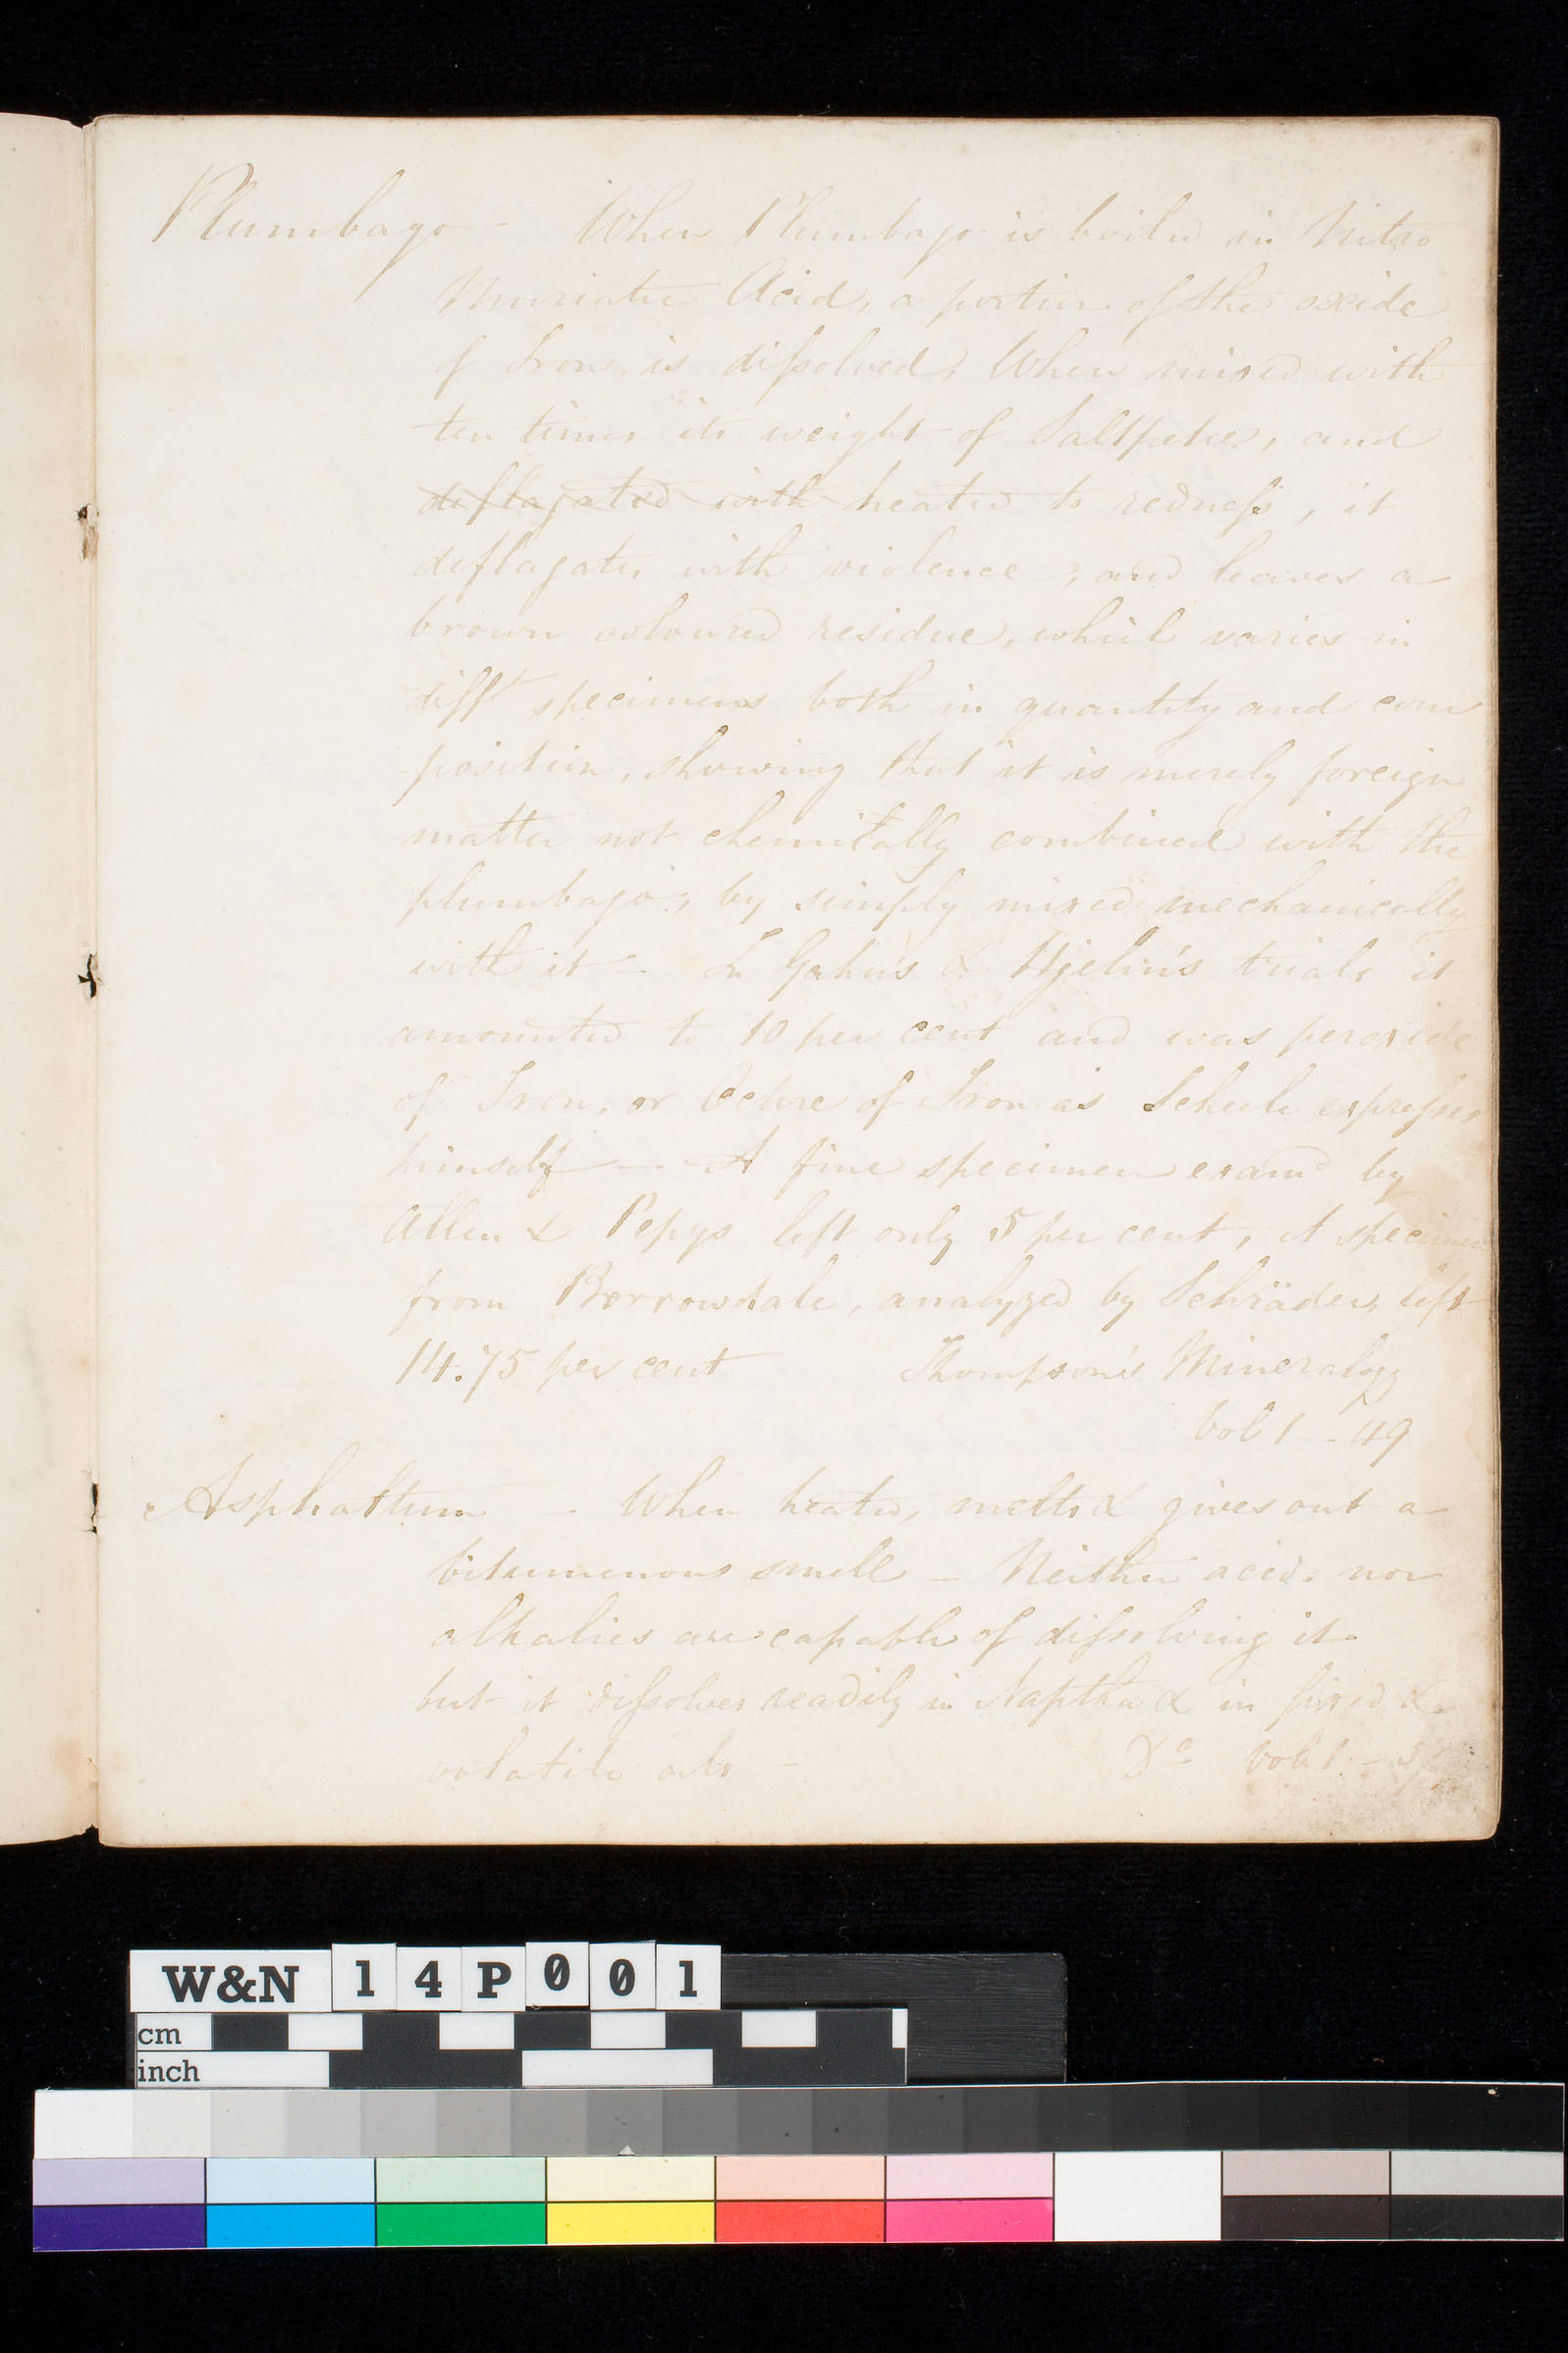 Plumbago - When Plumbago is boiled in Nitro
Muriatic Acid, a portion of the oxide
of Iron is dissolved, When mixed with
ten times its weight of Saltpetre, and
deflagated with heated to redness, it
deflagates with violence, and leaves a
brown coloured residue, which varies in
difft specimens both in quantity and com
position, showing that it is merely foreign
matter not chemically combined with the
plumbago, by simply mixed mechanically
with it - In Gahn's & Hjelm's trials it
amounted to 10 per cent and was peroxide
of Iron, or Ochre of Iron as Scheele expresses
himself - A fine specimen examd by
Allen & Pepys left only 5 per cent, A specimen
from Borrowdale, analyzed by Schräder, left
14.75 per cent Thompson's Mineralogy
Vol 1 - 49
Asphaltum - When heated, melts & gives out a
bitumenous smell - Neither acids nor
alkalies are capable of dissolving it
but it dissolves readily in Naptha & in fixed &
volatile oils - Do Vol. 1 -
W&N 14P001
cm
inch